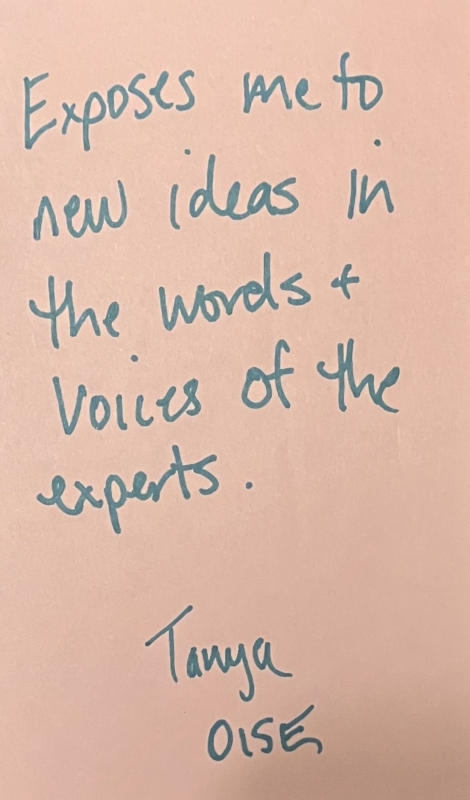 Exposes me to
new ideas in
the words +
voices of the
experts.
Tanya
OISE